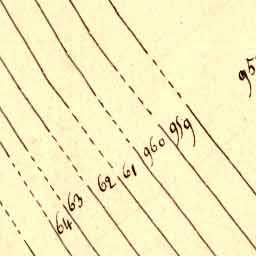 95
959
960
61
62
63
64